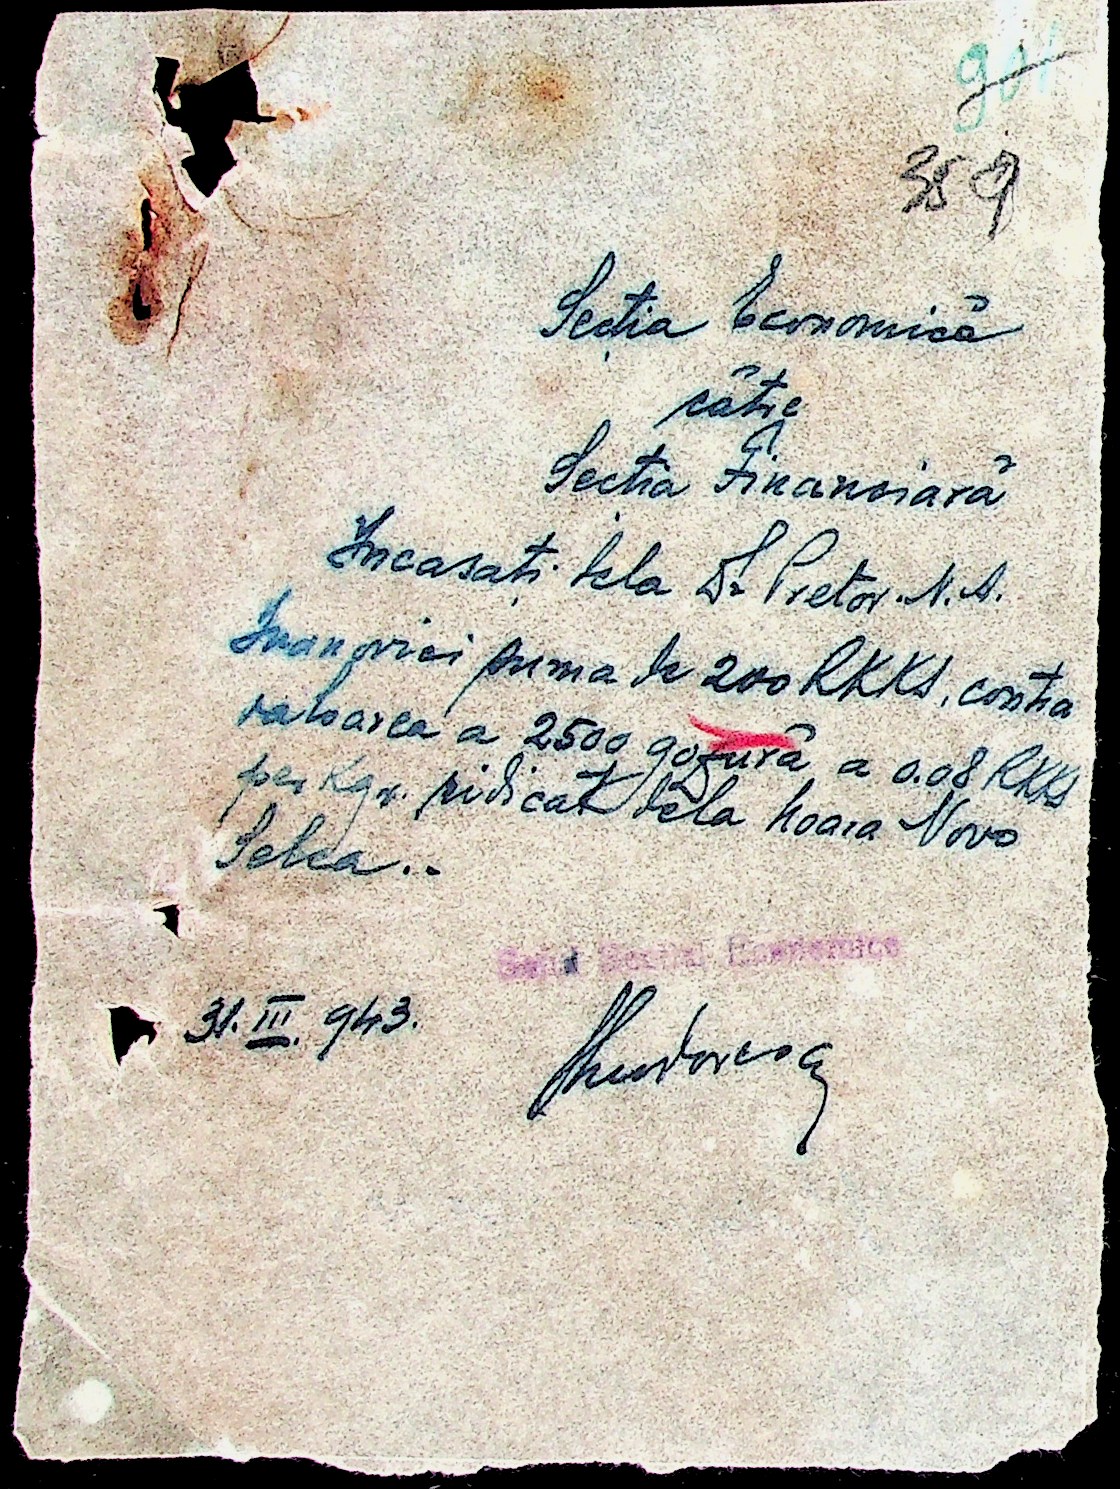 901
359
Secția Economică
cătrе
Secția Financiară
Incasați dela Dl Pretor N. A.
Ivanovici suma de 200 RKKS, contra
valoarea a 2500 gozură a 0.08 RKKS
per Kgr. ridicat dela moara Novo
Selca..
Șeful Secției Economice
31.III.943.